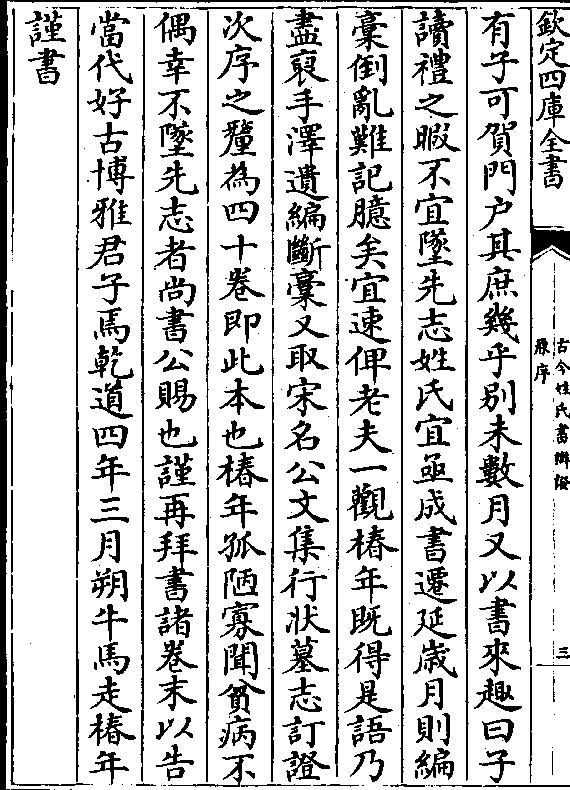 欽定四庫全書
古今姓氏書辯證
原序
三
有子可賀門户其庶幾乎别未數月又以書來趣曰子
讀禮之暇不宜墜先志姓氏宜亟成書遷延歲月則編
稾倒亂難記臆矣宜速俾老夫一觀椿年既得是語乃
盡裒手澤遺編斷稾又取宋名公文集行狀墓志訂證
次序之釐為四十卷即此本也椿年孤陋寡聞貧病不
偶幸不墜先志者尚書公賜也謹再拜書諸卷末以告
當代好古博雅君子焉乾道四年三月朔牛馬走椿年
謹書